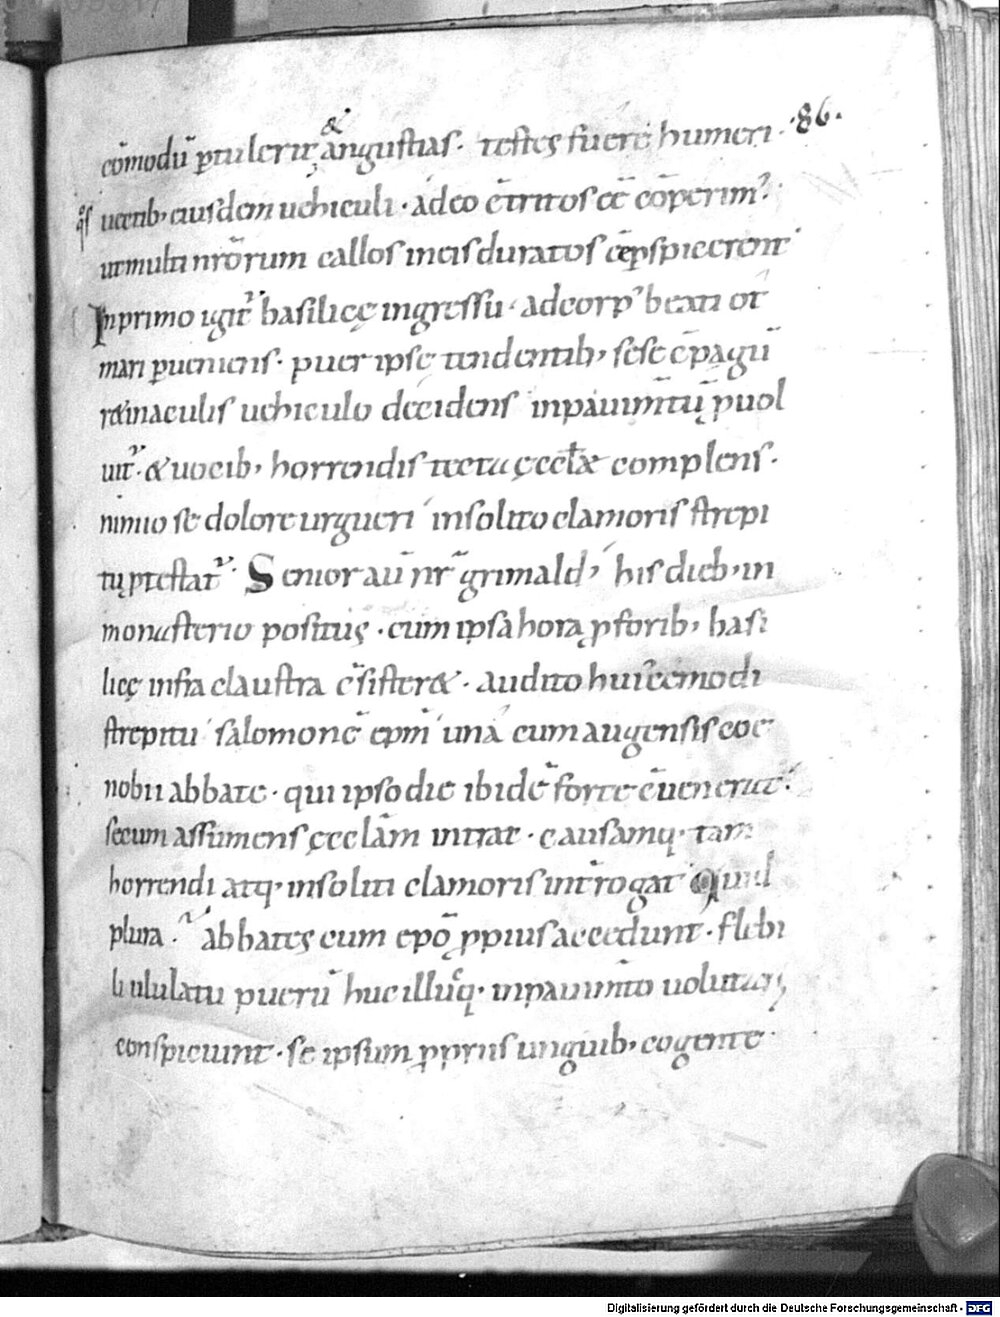 ·86·
&
cōmodū ꝑtulerit angustias· testes fuerē humeri
q̄s uectib; eiusdem uehiculi· adeo c̄tritos eē cōperim᷒
ut multi nrōrum callos in eis duratos c̄spicerent
In primo igit᷑ basilicę ingressu· ad corp᷒ beati ot
mari ꝑueniens· puer ipse tendentib; sese cōpagū
re& maculis uehiculo decidens in pauim̄tū ꝓuol
uit᷑· & uocib; horrendis tecta ęccl̄æ complens·
nimio se dolore urgueri insolito clamoris strepi
tu ꝓtestat᷑· Senior aū nr̄ grimald; his dieb; in
monasterio positus· cum ipsa hora ꝓ forib; basi
licę infra claustra c̄sister&· audito huiuscemodi
strepitu salomonē ep̄m una cum augensis coe
nobii abbate· qui ipso die ibidē forte c̄uenerat·
secum assumens ęcclām intrat· causamq· tam
horrendi atq; insoliti clamoris int̄rogat Quid
plura· abbates cum epō ꝓpius accedunt· flebi
li ululatu puerū huc illucq· in pauim̄to uolutas
conspiciunt· se ipsum ꝓpriis unguib; cogente
Digitalisierung gefördert durch die Deutsche Forschungsgemeinschaft - DFG